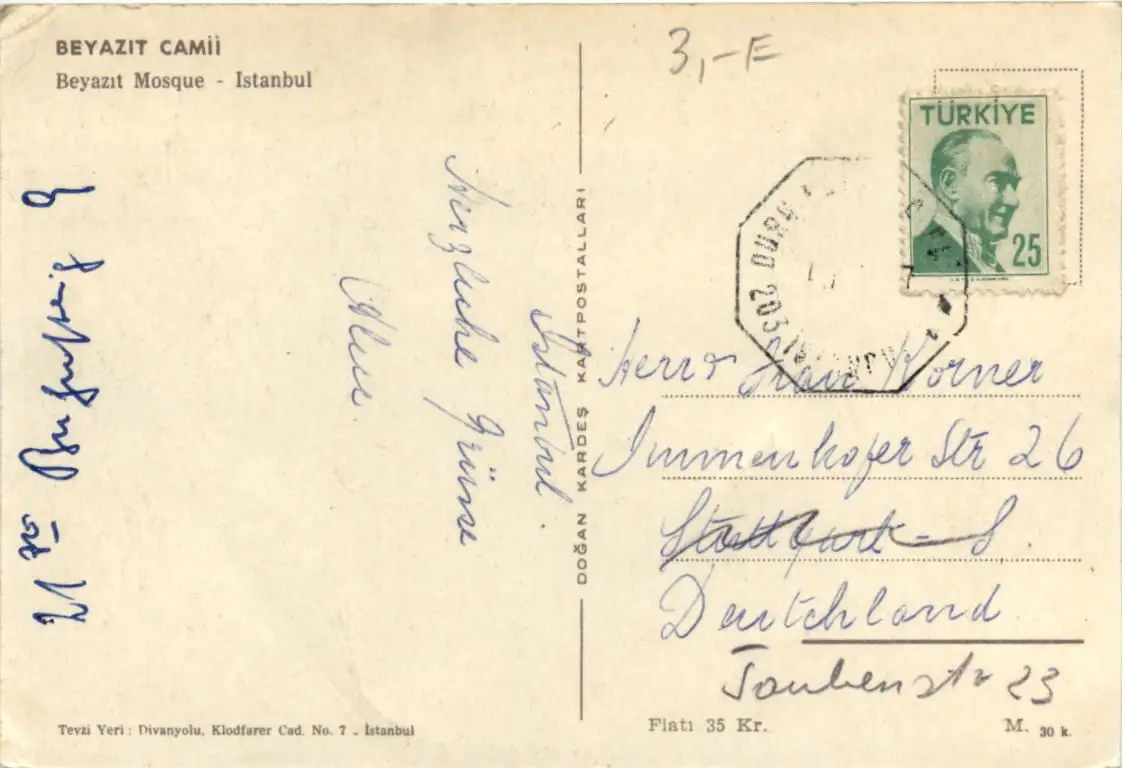 BEYAZIT CAMİİ
Beyazıt Mosque - Istanbul
3,-E
TÜRKİYE
25
Istanbul.
Herzliche Grüsse
DOĞAN KARDEŞ KARTPOSTALLARI
Herrn Körner
Immenhofer Str 26
Stuttgart - S.
Deutchland
Taubenstr 23
Tevzi Yeri : Divanyolu, Klodfarer Cad. No. 7 - İstanbul
Fiatı 35 Kr.
M. 30 k.